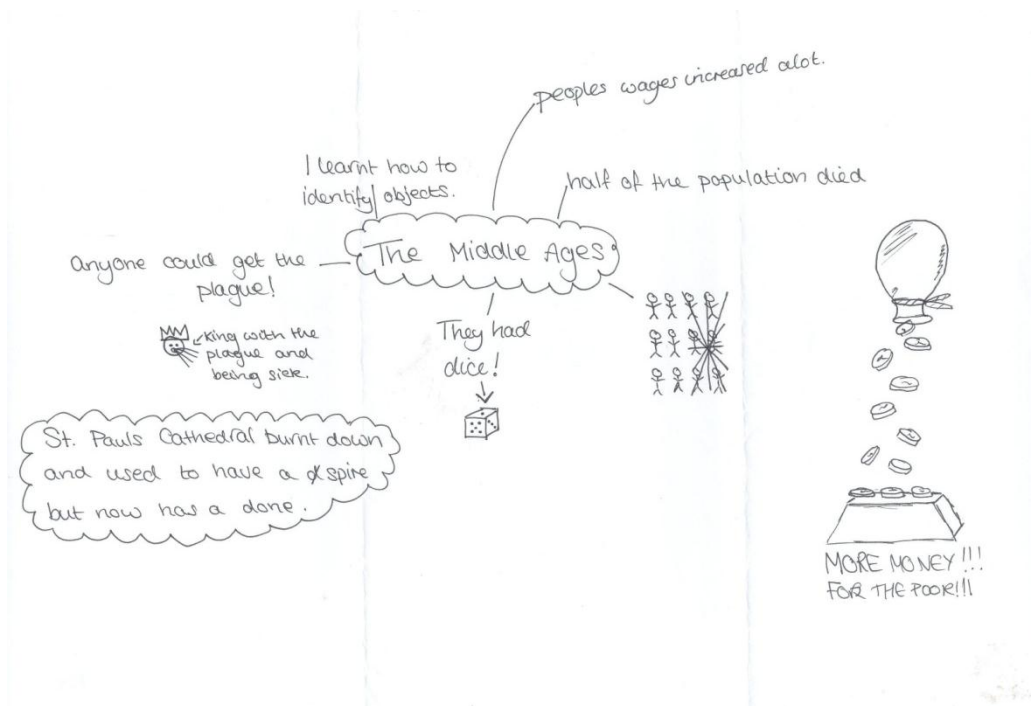 peoples wages increased alot.
I learnt how to
identify objects.
half of the population died
The Middle Ages
anyone could get the
plague!
king with the
plague and
being sick.
They had
dice!
St. Pauls Cathedral burnt down
and used to have a spire
but now has a dome.
MORE MONEY!!!
FOR THE POOR!!!